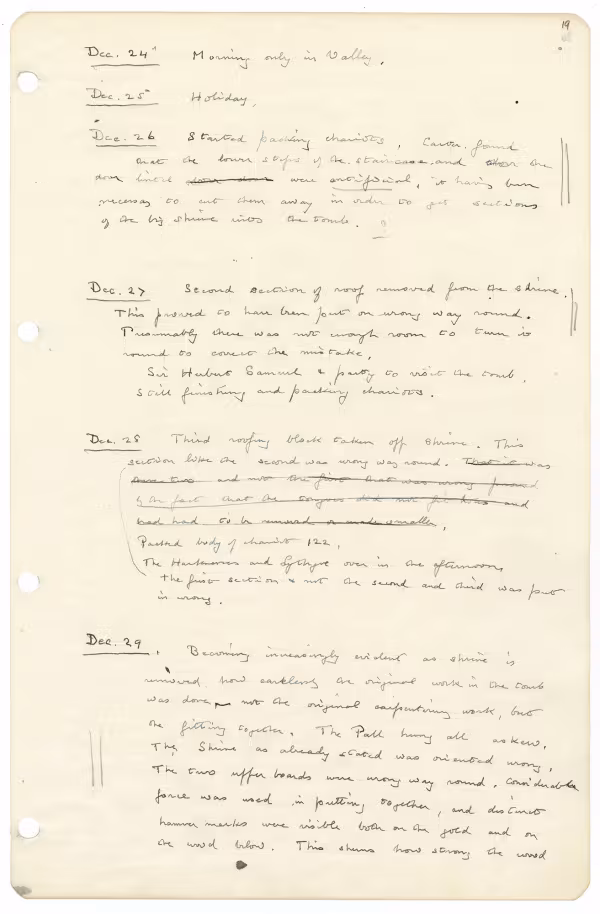 19
Dec. 24 Morning only in Valley.
Dec. 25 Holiday.
Dec. 26 Started packing chariots. Carter found
that the lower steps of the staircase and the
door lintel door door were artificial, it having been
necessary to cut them away in order to get sections
of the big shrine into the tomb. ?
Dec. 27 Second section of roof removed from the shrine.
This proved to have been put on wrong way round.
Presumably there was not enough room to turn it
round to correct the mistake.
Sir Herbert Samuel & party to visit the tomb.
Still finishing and packing chariots.
Dec. 28 Third roofing block taken off shrine. This
section like the second was wrong way round. That it was
these two and not the first that was wrong proved
by the fact that the tongues did not fit holes and
had had to be removed or made smaller.
Packed body of chariot 122.
The Harknesses and Lythgoe over in the afternoon.
The first section & not the second and third was put
in wrong.
Dec. 29. Becoming increasingly evident as shrine is
removed how carelessly the original work in the tomb
was done, not the original carpentering work, but
the fitting together. The Pall hung all askew.
The Shrine as already stated was oriented wrong.
The two upper boards were wrong way round. Considerable
force was used in putting together, and distinct
hammer marks were visible both on the gold and on
the wood below. This shows how strong the wood